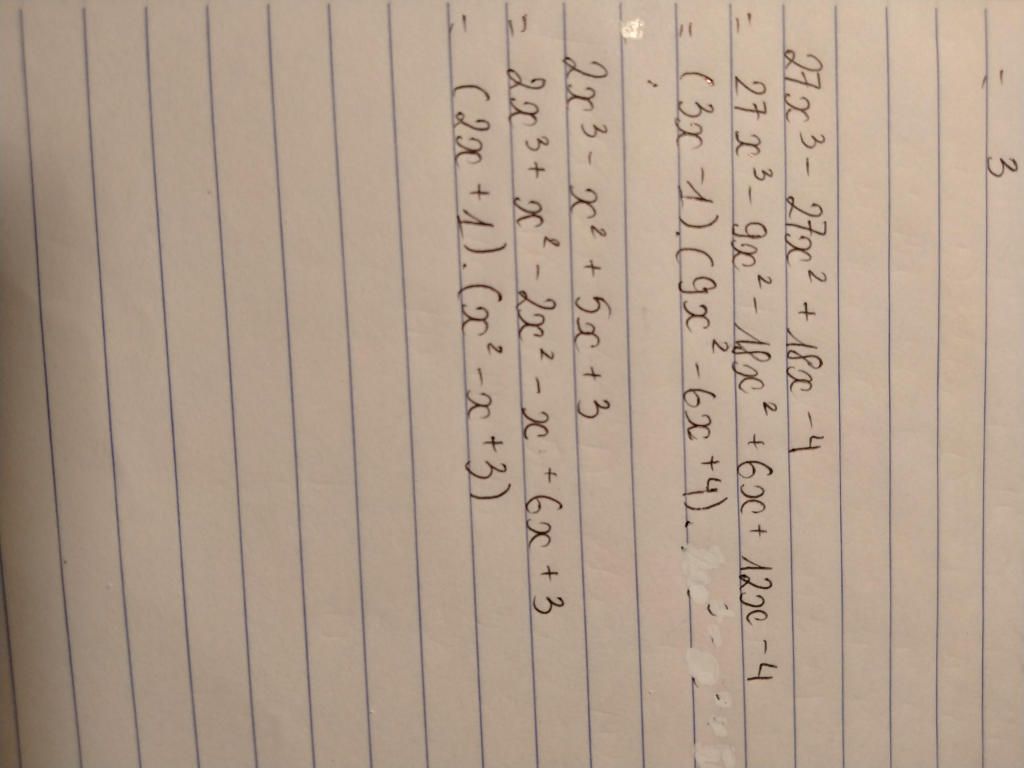 = 3
27x³ - 27x² + 18x - 4
= 27x³ - 9x² - 18x² + 6x + 12x - 4
= (3x - 1).(9x² - 6x + 4).
2x³ - x² + 5x + 3
= 2x³ + x² - 2x² - x + 6x + 3
= (2x + 1).(x² - x + 3)